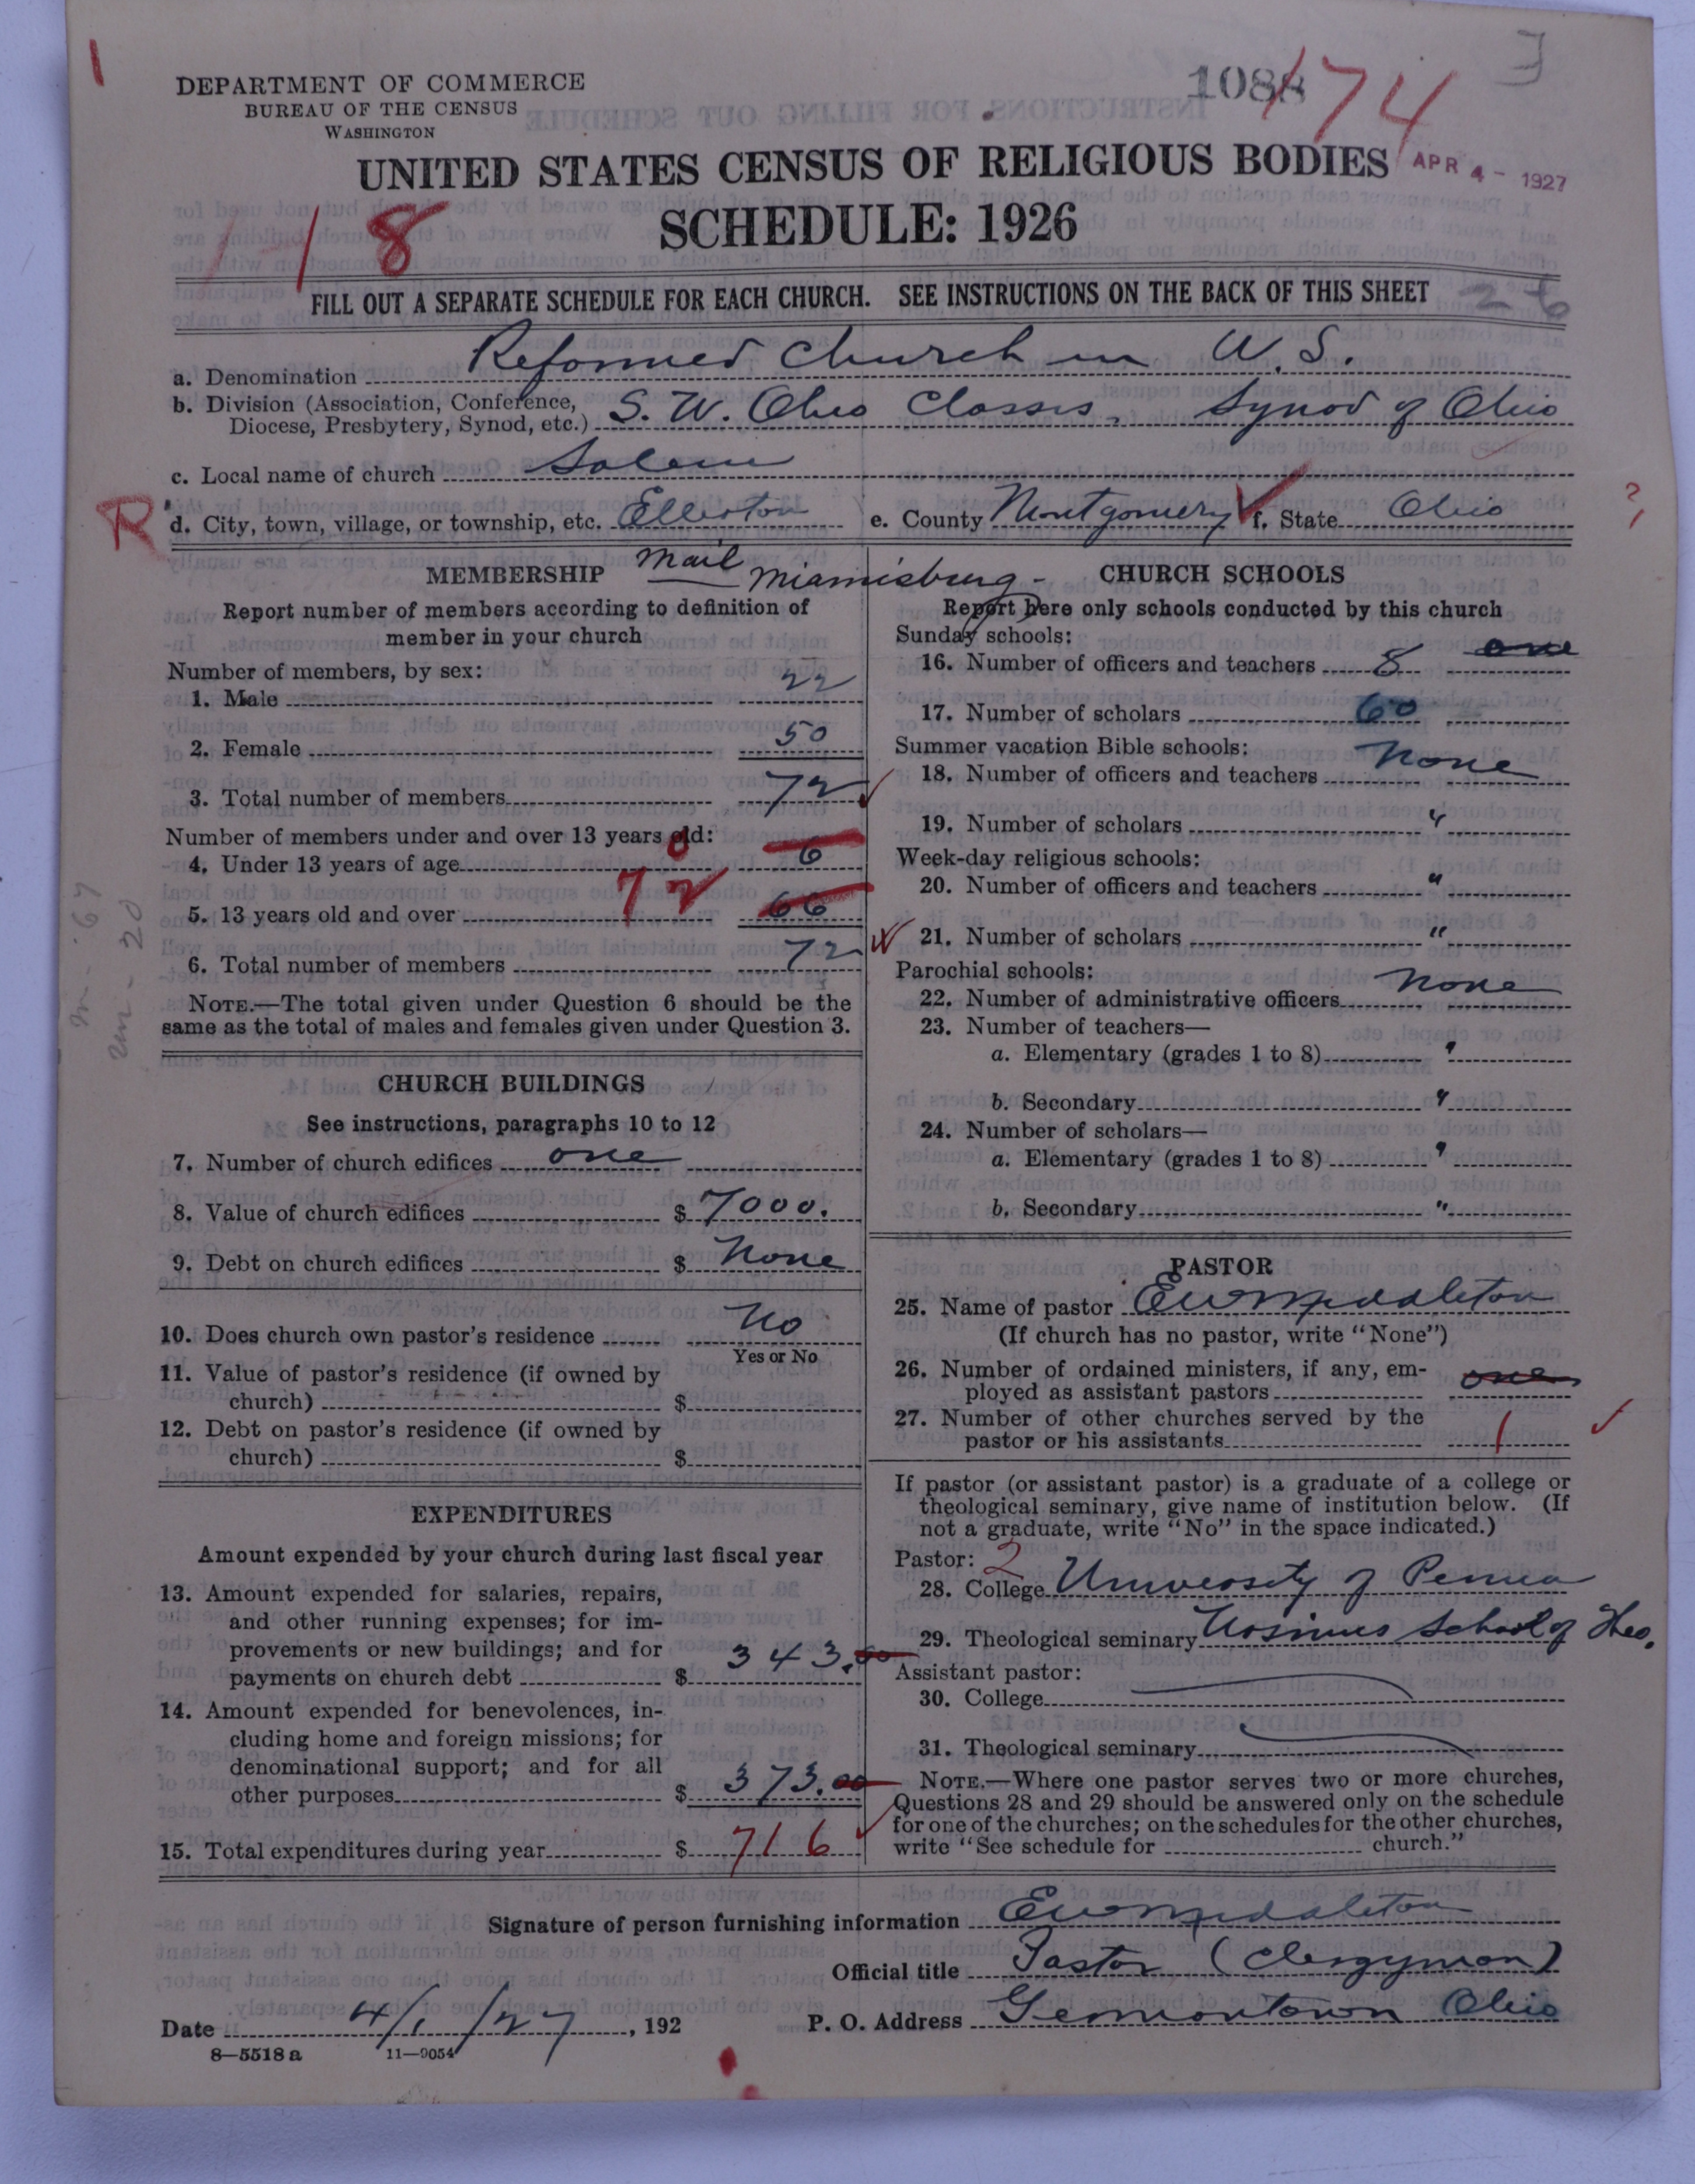 1088 174
DEPARTMENT OF COMMERCE
BUREAU OF THE CENSUS
WASHINGTON
UNITED STATES CENSUS OF RELIGIOUS BODIES
APR 4 - 1927
SCHEDULE: 1926
1-18
FILL OUT A SEPARATE SCHEDULE FOR EACH CHURCH. SEE INSTRUCTIONS ON THE BACK OF THIS SHEET
26
a. Denomination Reformed Church in U. S.
b. Division (Association, Conference, Diocese, Presbytery, Synod, etc.) S. W. Ohio Classis, Synod of Ohio
c. Local name of church Salem
R d. City, town, village, or township, etc. Ellerton e. County Montgomery f. State Ohio ?
Mail Miamisburg -
MEMBERSHIP
Report number of members according to definition of
member in your church
Number of members, by sex:
1. Male 22
2. Female 50
3. Total number of members 72
Number of members under and over 13 years old:
4. Under 13 years of age 6
5. 13 years old and over 72 66
6. Total number of members 72
NOTE.—The total given under Question 6 should be the
same as the total of males and females given under Question 3.
CHURCH BUILDINGS
See instructions, paragraphs 10 to 12
7. Number of church edifices one
8. Value of church edifices $ 7000.
9. Debt on church edifices $ None
10. Does church own pastor's residence No
Yes or No
11. Value of pastor's residence (if owned by
church) $
12. Debt on pastor's residence (if owned by
church) $
EXPENDITURES
Amount expended by your church during last fiscal year
13. Amount expended for salaries, repairs,
and other running expenses; for im-
provements or new buildings; and for
payments on church debt $ 343.00
14. Amount expended for benevolences, in-
cluding home and foreign missions; for
denominational support; and for all
other purposes $ 373.00
15. Total expenditures during year $ 716
CHURCH SCHOOLS
Report here only schools conducted by this church
Sunday schools:
16. Number of officers and teachers 8 one
17. Number of scholars 60
Summer vacation Bible schools:
18. Number of officers and teachers None
19. Number of scholars "
Week-day religious schools:
20. Number of officers and teachers "
21. Number of scholars "
Parochial schools:
22. Number of administrative officers None
23. Number of teachers—
a. Elementary (grades 1 to 8) "
b. Secondary "
24. Number of scholars—
a. Elementary (grades 1 to 8) "
b. Secondary "
PASTOR
25. Name of pastor E W Middleton
(If church has no pastor, write "None")
26. Number of ordained ministers, if any, em-
ployed as assistant pastors one
27. Number of other churches served by the
pastor or his assistants 1
If pastor (or assistant pastor) is a graduate of a college or
theological seminary, give name of institution below. (If
not a graduate, write "No" in the space indicated.)
Pastor: 2
28. College University of Penna
29. Theological seminary Ursinus School of Theo.
Assistant pastor:
30. College
31. Theological seminary
NOTE.—Where one pastor serves two or more churches,
Questions 28 and 29 should be answered only on the schedule
for one of the churches; on the schedules for the other churches,
write "See schedule for church."
Signature of person furnishing information E W Middleton
Official title Pastor (Clergyman)
Date 4/1/27, 192
P. O. Address Germantown Ohio
8—5518 a 11—9054